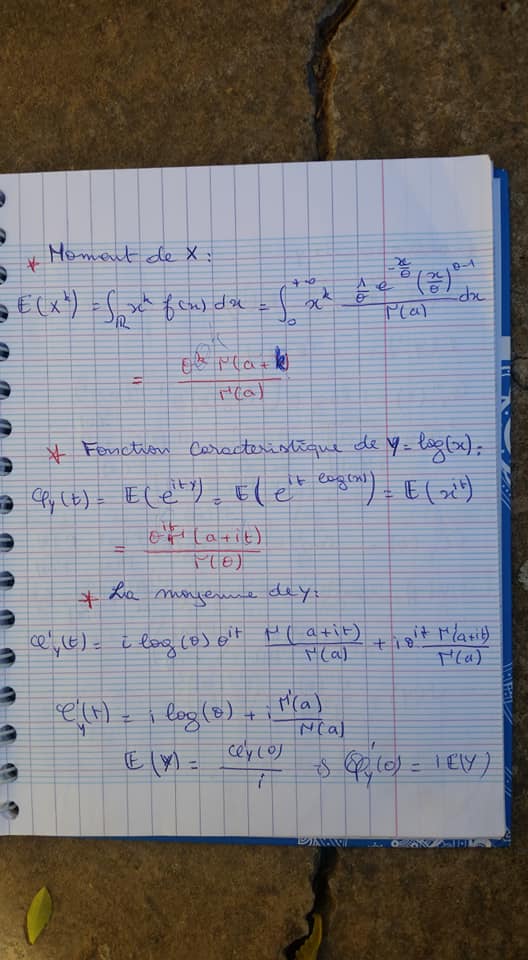 * Moment de X :
E(X^k) = ∫_ℝ x^k f(x) dx = ∫_0^{+∞} x^k \frac{\frac{1}{θ} e^{-\frac{x}{θ}} (\frac{x}{θ})^{a-1}}{Γ(a)} dx
= \frac{θ^k Γ(a+k)}{Γ(a)}
* Fonction caracteristique de Y = log(x) :
φ_Y(t) = E(e^{itY}) = E(e^{it log(x)}) = E(x^{it})
= \frac{θ^{it} Γ(a+it)}{Γ(θ)}
* La moyenne de Y :
φ'_Y(t) = i log(θ) θ^{it} \frac{Γ(a+it)}{Γ(a)} + i θ^{it} \frac{Γ'(a+it)}{Γ(a)}
φ'_Y(t) = i log(θ) + i \frac{Γ'(a)}{Γ(a)}
E(Y) = \frac{φ'_Y(0)}{i} φ'_Y(0) = i E(Y)